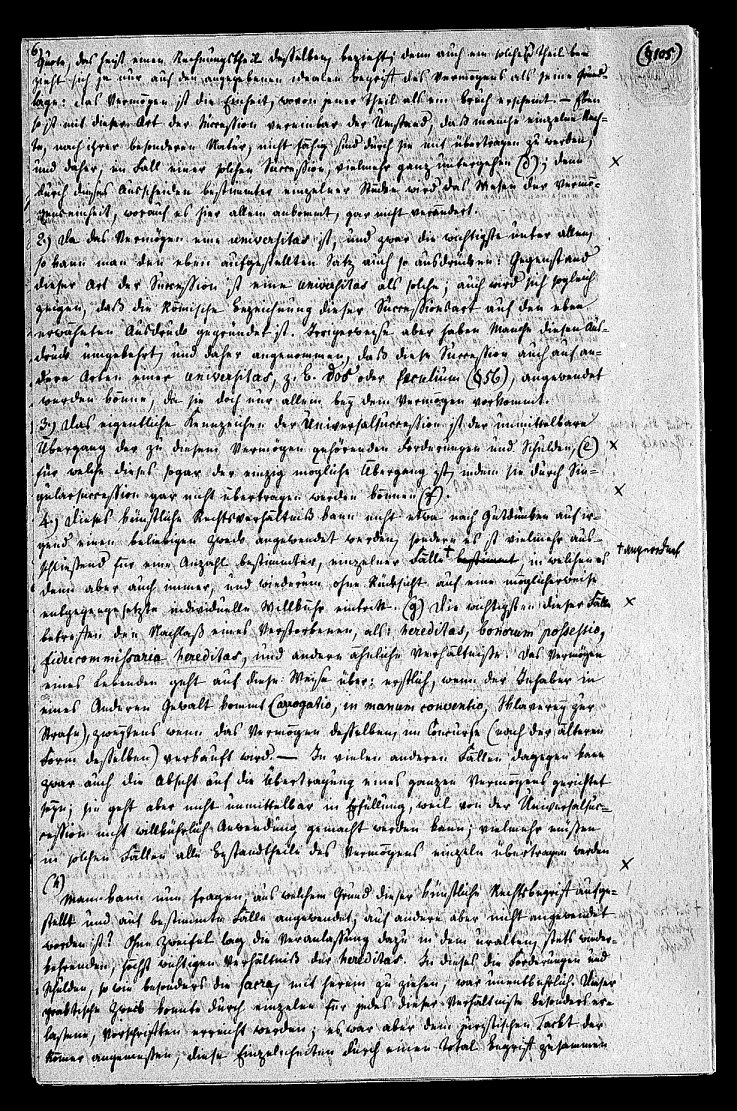 6)
(§105)
Quote, das heißt einen Rechnungstheil desselben, bezieht; denn auch ein solcher Theil be-
zieht sich ja nur auf den angegebenen idealen Begriff des Vermögens als seine Grund-
lage: das Vermögen ist die Einheit, wovon jener Theil als ein Bruch erscheint. — Eben
so ist mit dieser Art der Succession vereinbar der Umstand, daß manche einzelne Rech-
te, nach ihrer besonderen Natur, nicht fähig sind durch sie mit übertragen zu werden,
und daher, im Fall einer solchen Succession, vielmehr ganz untergehen (d); denn
durch dieses Ausscheiden bestimmter einzelner Stücke wird das Wesen der Vermö-
genseinheit, worauf es hier allein ankommt, gar nicht verändert.
2.) Da das Vermögen eine universitas ist, und zwar die wichtigste unter allen,
so kann man den eben aufgestellten Satz auch so ausdrücken: Gegenstand
dieser Art der Succession ist eine universitas als solche; auch wird sich sogleich
zeigen, daß die Römische Bezeichnung dieser Successionsart auf den eben
erwähnten Ausdruck gegründet ist. Irrigerweise aber haben Manche diesen Aus-
druck umgekehrt, und daher angenommen, daß diese Succession auch auf an-
dere Arten einer universitas, z. B. dos oder peculium (§56), angewendet
werden könne, da sie doch nur allein bey dem Vermögen vorkommt.
3.) Das eigentliche Kennzeichen der Universalsuccession ist der unmittelbare
Übergang der zu diesem Vermögen gehörenden Forderungen und Schulden, (e)
für welche dieses sogar der einzig mögliche Übergang ist, indem sie durch Sin-
gularsuccession gar nicht übertragen werden können (f).
4.) Dieses künstliche Rechtsverhältniß kann nicht etwa nach Gutdünken auf ir-
gend einen beliebigen Zweck angewendet werden, sondern es ist vielmehr aus-
schließend für eine Anzahl bestimmter, einzelner Fälle + bestimmt, in welchen es
+ angeordnet
denn aber auch immer, und wiederum ohne Rücksicht auf eine möglicherweise
entgegengesetzte individuelle Willkühr eintritt. (g) Die wichtigsten dieser Fälle
betreffen den Nachlaß eines Verstorbenen, als: hereditas, bonorum possessio,
fideicommissaria hereditas, und andere ähnliche Verhältnisse. Das Vermögen
eines Lebenden geht auf diese Weise über: erstlich, wenn der Inhaber in
eines Anderen Gewalt kommt (arrogatio, in manum conventio, Sklaverey zur
Strafe), zweytens wenn das Vermögen desselben, im Concurse (nach der älteren
Form desselben) verkauft wird. — In vielen anderen Fällen dagegen kann
zwar auch die Absicht auf die Übertragung eines ganzen Vermögens gerichtet
seyn; sie geht aber nicht unmittelbar in Erfüllung, weil von der Universalsuc-
cession nicht willkührlich Anwendung gemacht werden kann; vielmehr müssen
in solchen Fällen alle Bestandtheile des Vermögens einzeln übertragen werden
(h)
Man kann nun fragen, aus welchem Grund dieser künstliche Rechtsbegriff aufge-
stellt und auf bestimmte Fälle angewendet, auf andere aber nicht angewendet
worden ist? Ohne Zweifel lag die Veranlassung dazu in dem uralten, stets wieder-
kehrenden, höchst wichtigen Verhältniß der hereditas. In dieses die Forderungen und
Schulden, so wie besonders die sacra, mit herein zu ziehen, war unentbehrlich. Dieser
praktische Zweck konnte durch einzelne für jedes dieser Verhältnisse besonders er-
lassene, Vorschriften erreicht werden; es war aber dem juristischen Tackt der
Römer angemessen, diese Einzelnheiten durch einen Total begriff zusammen